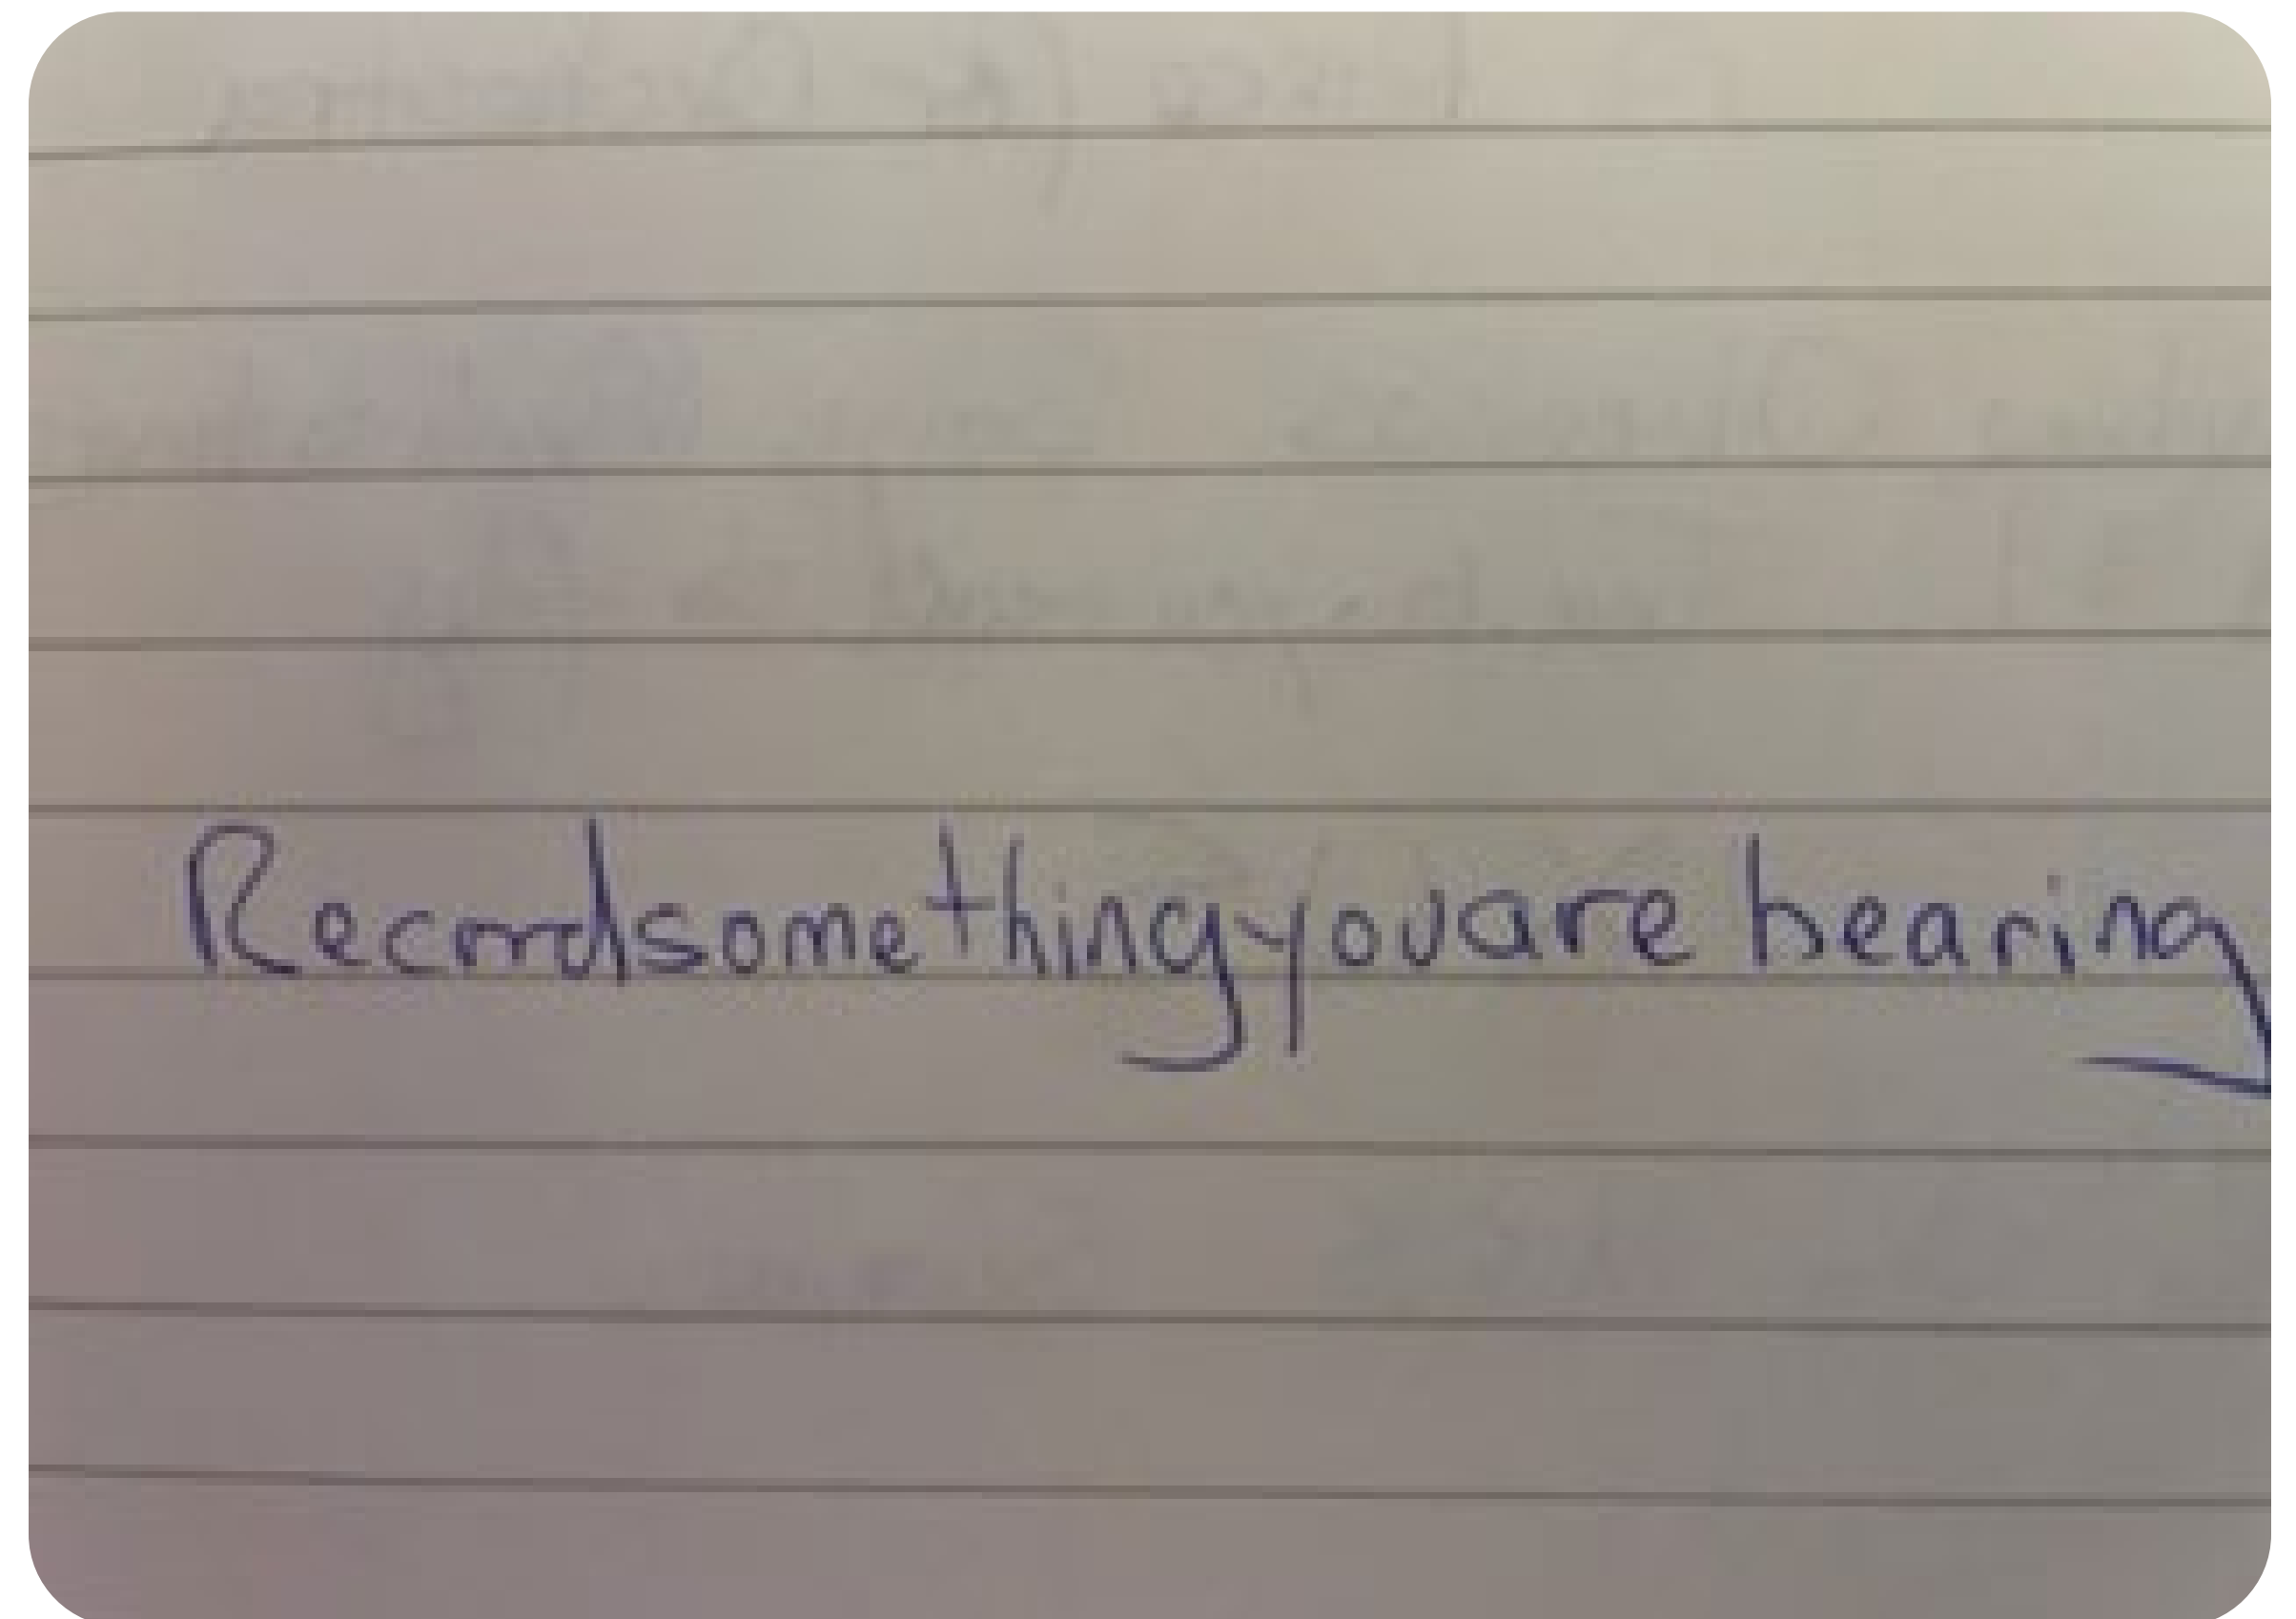 Record something you are hearing